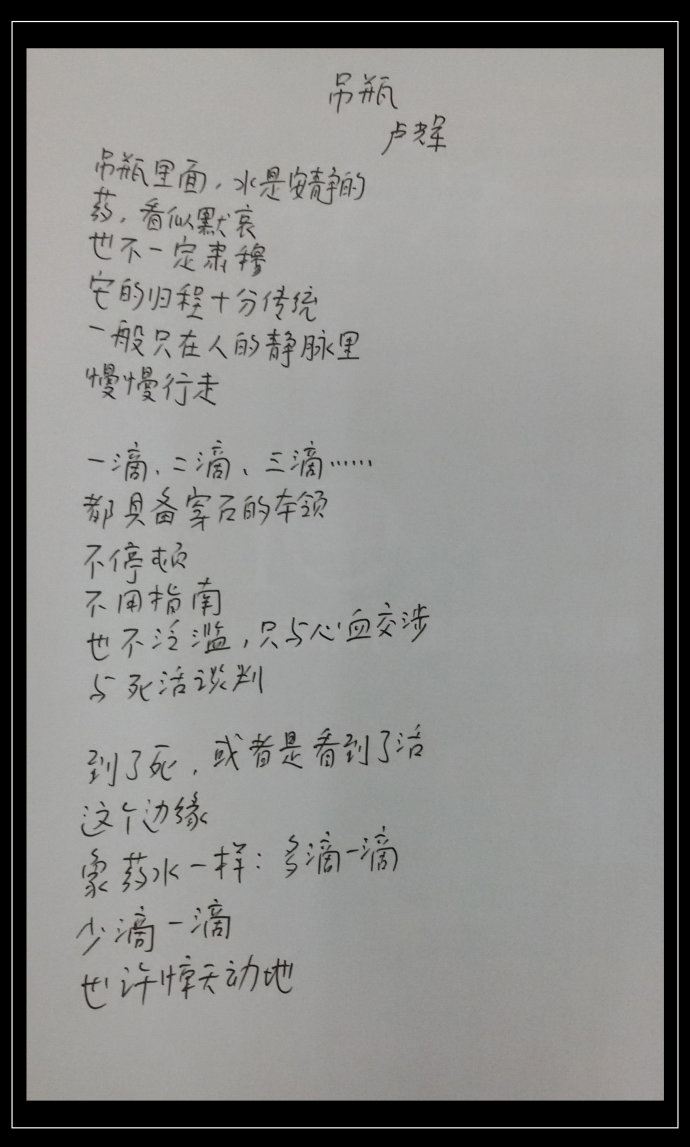 吊瓶
卢辉
吊瓶里面，水是安静的
药，看似默哀
也不一定肃穆
它的归程十分传统
一般只在人的静脉里
慢慢行走
一滴、二滴、三滴……
都具备穿石的本领
不停顿
不用指南
也不泛滥，只与心血交涉
与死活谈判
到了死，或者是看到了活
这个边缘
象药水一样：多滴一滴
少滴一滴
也许惊天动地